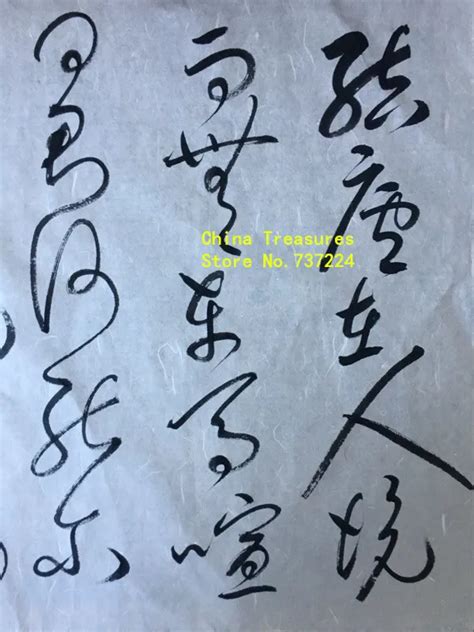 結廬在人境
而無車馬喧
問君何能尔
China Treasures
Store No.737224